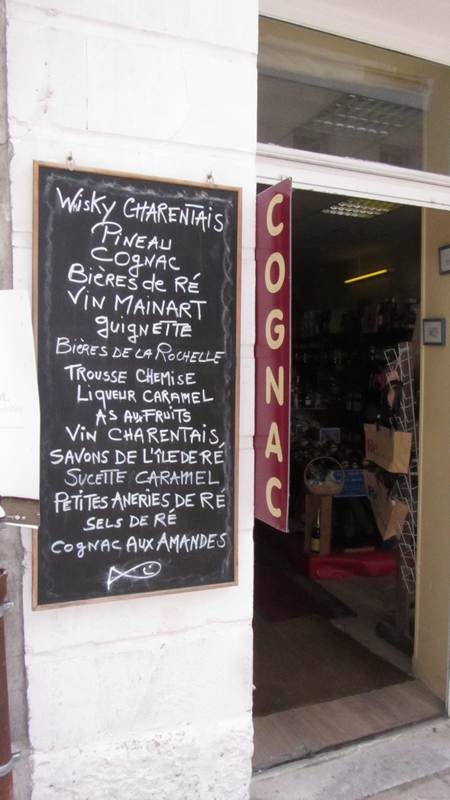 Wisky CHARENTAIS
PINEAU
COgNAC
BIÈRES de RÉ
VIN MAINART
guignette
BIÈRES DE LA ROCHELLE
TROUSSE CHEMISE
LIQUEUR CARAMEL
AS AUX FRUITS
VIN CHARENTAIS
SAVONS DE L'ÎLE DE RÉ
SUCETTE CARAMEL
PETITES ANERIES DE RÉ
SELS DE RÉ
COGNAC AUX AMANDES
COGNAC